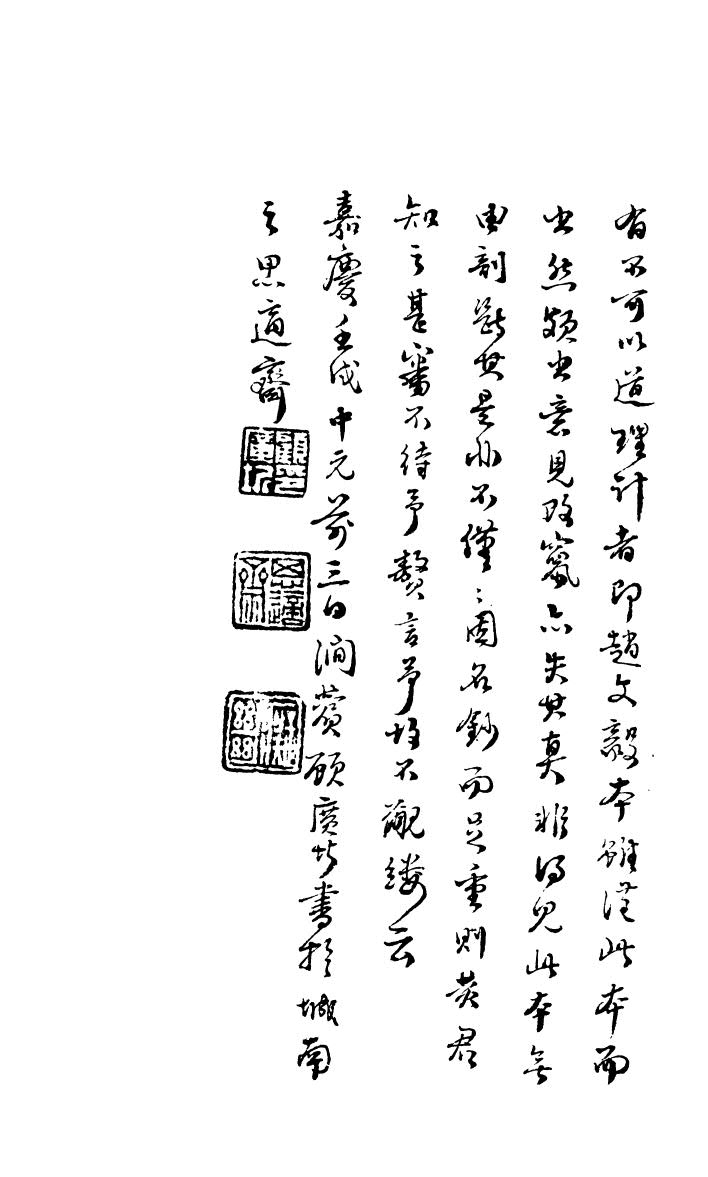 有不可以道理計者即趙文毅本雖從此本而
出然頗出意見改竄亦失其真非得見此本無
由剖斷其是非不僅〻因名鈔而足重則黃君
知之甚審不待予贅言予故不覼縷云
嘉慶壬戌中元前三日澗薲顧廣圻書於城南
之思適齋
顧廣圻
思適齋